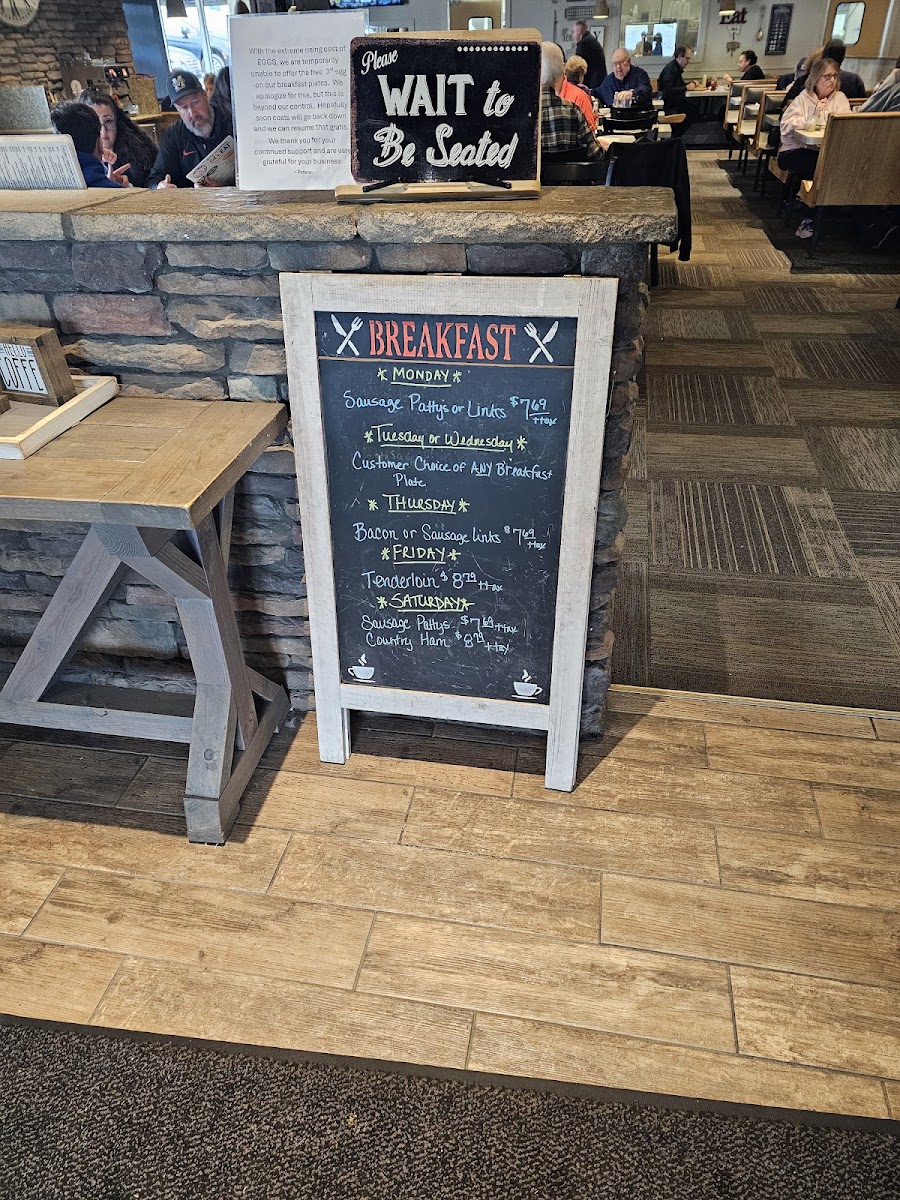 With the extreme rising cost of
EGGS, we are temporarily
unable to offer the free 3rd egg
on our breakfast plates. We
apologize for this, but this is
beyond our control. Hopefully
soon costs will go back down
and we can resume that gratis.
We thank you for your
continued support and are very
grateful for your business.
Please
WAIT to
Be Seated
Eat
HELLO
COFFE
BREAKFAST
MONDAY
Sausage Pattys or Links $7.69
+tax
Tuesday or Wednesday
Customer Choice of ANY Breakfast
Plate
THURSDAY
Bacon or Sausage Links $7.69
+tax
FRIDAY
Tenderloin $8.79 +tax
SATURDAY
Sausage Pattys $7.69 +tax
Country Ham $8.79 +tax